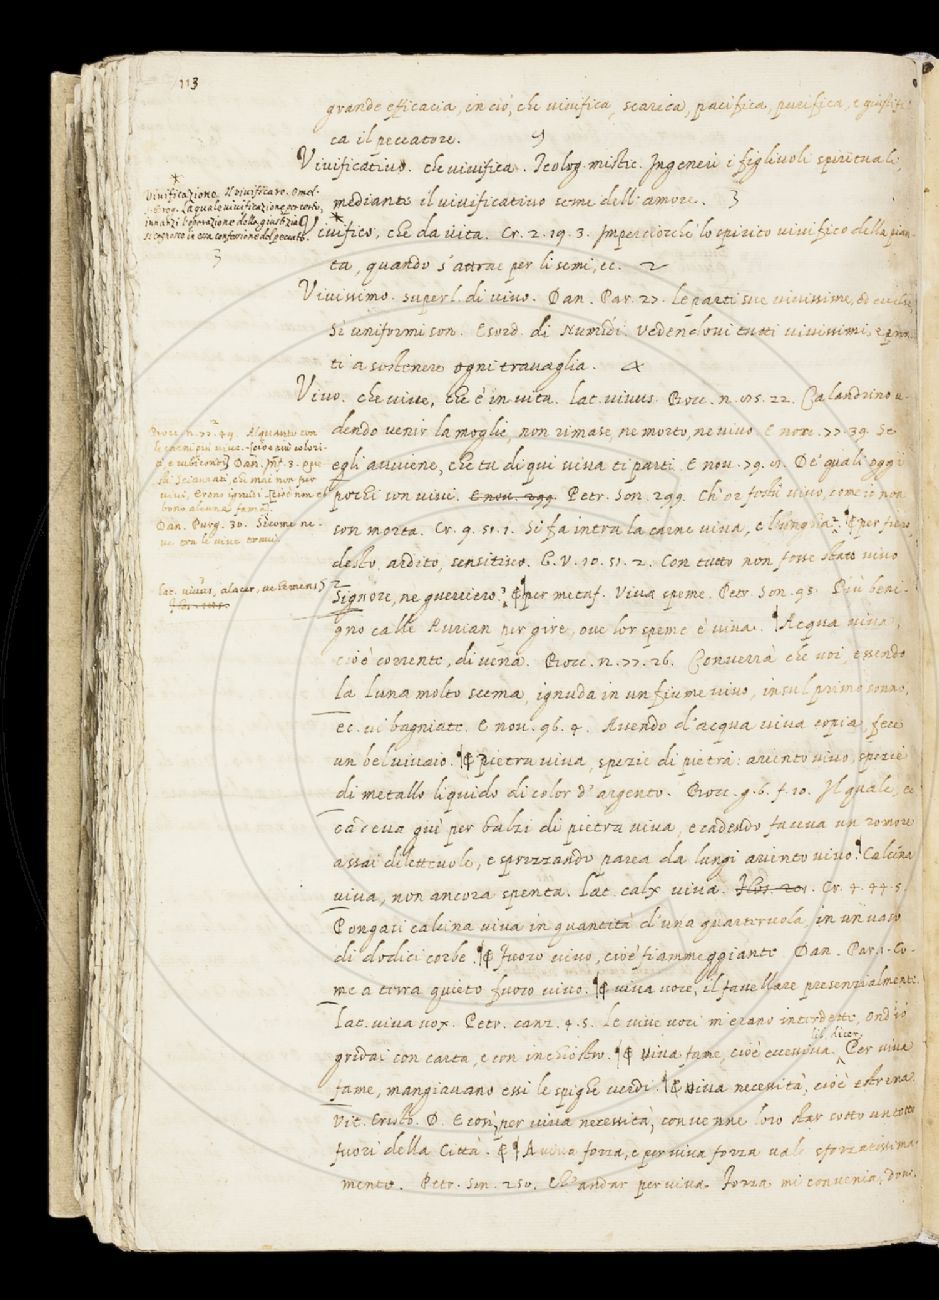 113
grande efficacia, in ciò, che vivifica, scarica, pacifica, purifica, e giustifi-
ca il peccatore.
Vivificativo. che vivifica. Teolog. mistic. Ingeneri i figlivoli spirituali,
mediante il vivificativo seme dell'amore. 3
Vivificazione. Il vivificare. Omel.
La quale vivificazione per certo,
innanzi l'operazione della giustizia
si cognosce in essa confessione del peccato.
3
Vivifico, che da vita. Cr. 2. 19. 3. Imperciocchè lo spirito vivifico della pian-
ta, quando s'attrae per li semi, ec. 2
Vivissimo. superl. di vivo. Dan. Par. 27. le parti sue vivissime, ed eccelse,
Sì uniformi son. Esord. di Numidi. vedendovi tutti vivissimi, e pron-
ti a sostenere ogni travaglia.
Vivo. che vive, che è in vita. lat. vivus. Bocc. n. 22. Calandrino ve-
dendo venir la moglie, non rimase, ne morto, ne vivo. E nov. 77. 39. Se
egli avviene, che tu di qui viva ti parti. E nov. 79. De' quali oggi
pochi son vivi. E nov. 299. Petr. Son. 299. Ch'or fostù vivo, come io non
son morta. Cr. 9. 51. 1. Si fa intra la carne viva, e l'unghia. ¶ per fiero,
desto, ardito, sensitivo. G. V. 10. 51. 2. Con tutto non fosse stato vivo
Signore, ne guerriero. ¶ per metaf. Viva speme. Petr. Son. Più beni-
gno calle Avrian per gire, ove lor speme è viva. ¶ Acqua viva,
cioè corrente, di vena. Bocc. n. 77. 26. Converrà che voi, essendo
la luna molto scema, ignuda in un fiume vivo, in sul primo sonno,
ec. vi bagniate. E nov. 96. 4. Avendo d'acqua viva copia, fece
un bel vivaio. ¶ pietra viva, spezie di pietra: ariento vivo, spezie
di metallo liquido di color d'argento. Bocc. g. 6. f. 10. Il quale, ec
cadeva giù per balzi di pietra viva, e cadendo faceva un romore
assai dilettevole, e sprizzando parea da lungi ariento vivo. ¶ Calcina
viva, non ancora spenta. lat. calx viva. Cr. 4. 44. 5.
Pongasi calcina viva in quantità d'una quarteruola, in un vaso
di dodici corbe. ¶ fuoco vivo, cioè fiammeggiante. Dan. Par. 1. Co-
me a terra quieto fuoco vivo. ¶ viva voce, il favellare presenzialmente.
lat. viva vox. Petr. canz. 4. 5. le vive voci m'erano interdette, Ond'io
gridai con carta, e con inchiostro. ¶ viva fame, cioè eccessiva. lib. dicer. Per viva
fame, mangiavano essi le spighe verdi. ¶ viva necessità, cioè estrema.
Vit. Crist. D. E così, per viva necessità, convenne loro star sotto un tetto
fuori della Città. ¶ A viva forza, e per viva forza vale sforzatissima-
mente. Petr. Son. 250. Ch'andar per viva forza mi convenia, dove
Bocc. n. 77. 49. Alquanto con
le carni più vive. cioè più colori-
te e rubiconde. Dan. Inf. 3. Que-
sti sciaurati, che mai non fur
vivi, Erano ignudi. cioè non eb-
bono alcuna fama.
Dan. Purg. 30. Sì come ne-
ve tra le vive travi.
lat. vivus, alacer, vehemens